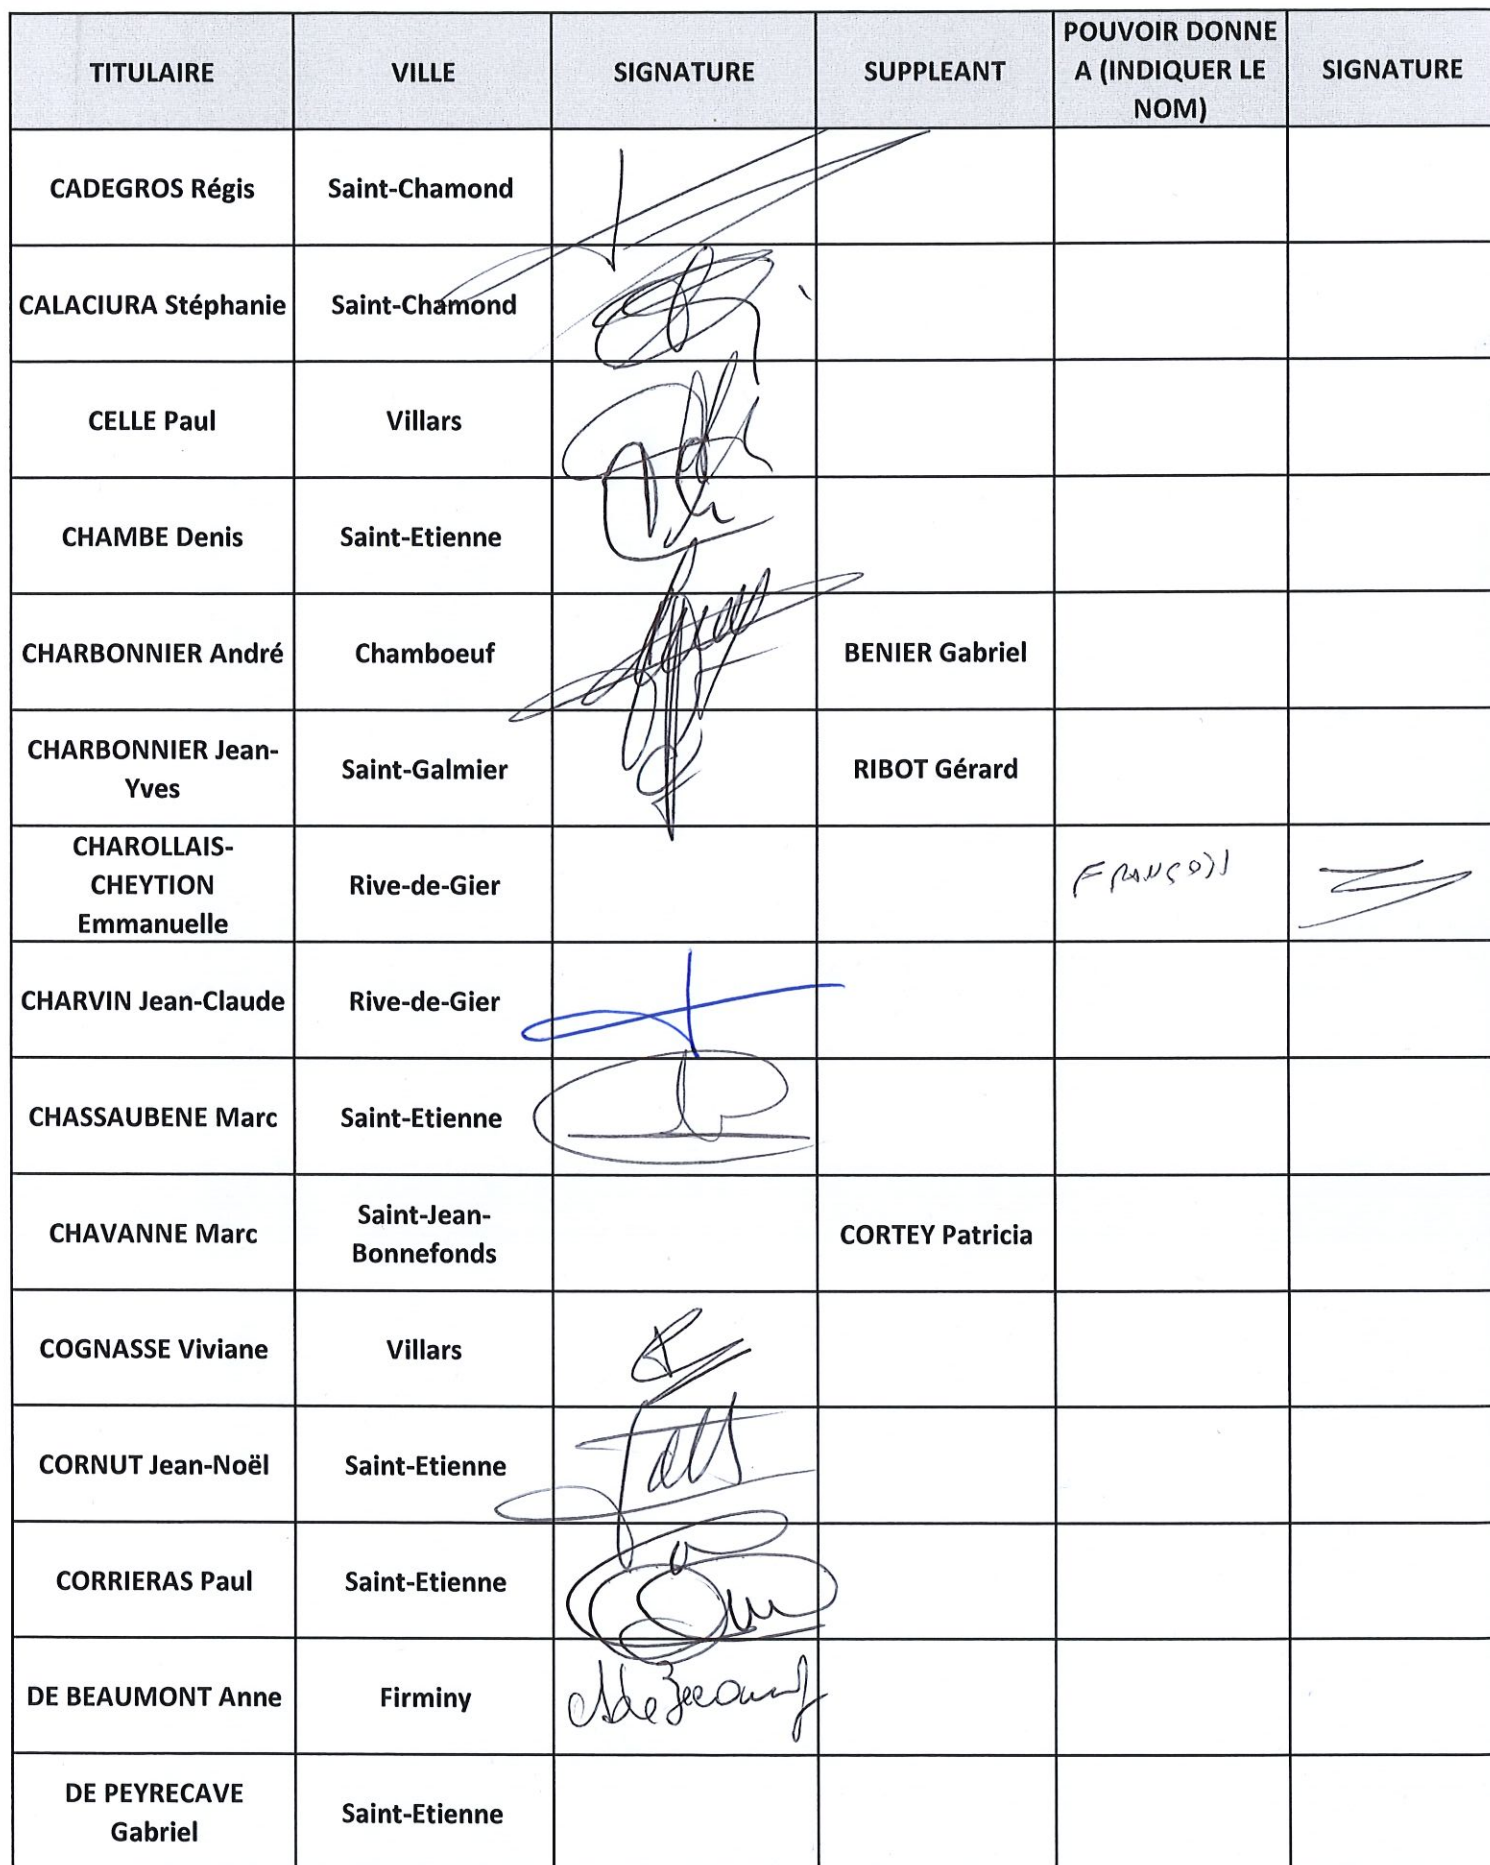 TITULAIRE VILLE SIGNATURE SUPPLEANT POUVOIR DONNE
A (INDIQUER LE
NOM) SIGNATURE
CADEGROS Régis Saint-Chamond
CALACIURA Stéphanie Saint-Chamond
CELLE Paul Villars
CHAMBE Denis Saint-Etienne
CHARBONNIER André Chamboeuf BENIER Gabriel
CHARBONNIER Jean-
Yves Saint-Galmier RIBOT Gérard
CHAROLLAIS-
CHEYTION
Emmanuelle Rive-de-Gier FRANÇOIS
CHARVIN Jean-Claude Rive-de-Gier
CHASSAUBENE Marc Saint-Etienne
CHAVANNE Marc Saint-Jean-
Bonnefonds CORTEY Patricia
COGNASSE Viviane Villars
CORNUT Jean-Noël Saint-Etienne
CORRIERAS Paul Saint-Etienne
DE BEAUMONT Anne Firminy
DE PEYRECAVE
Gabriel Saint-Etienne